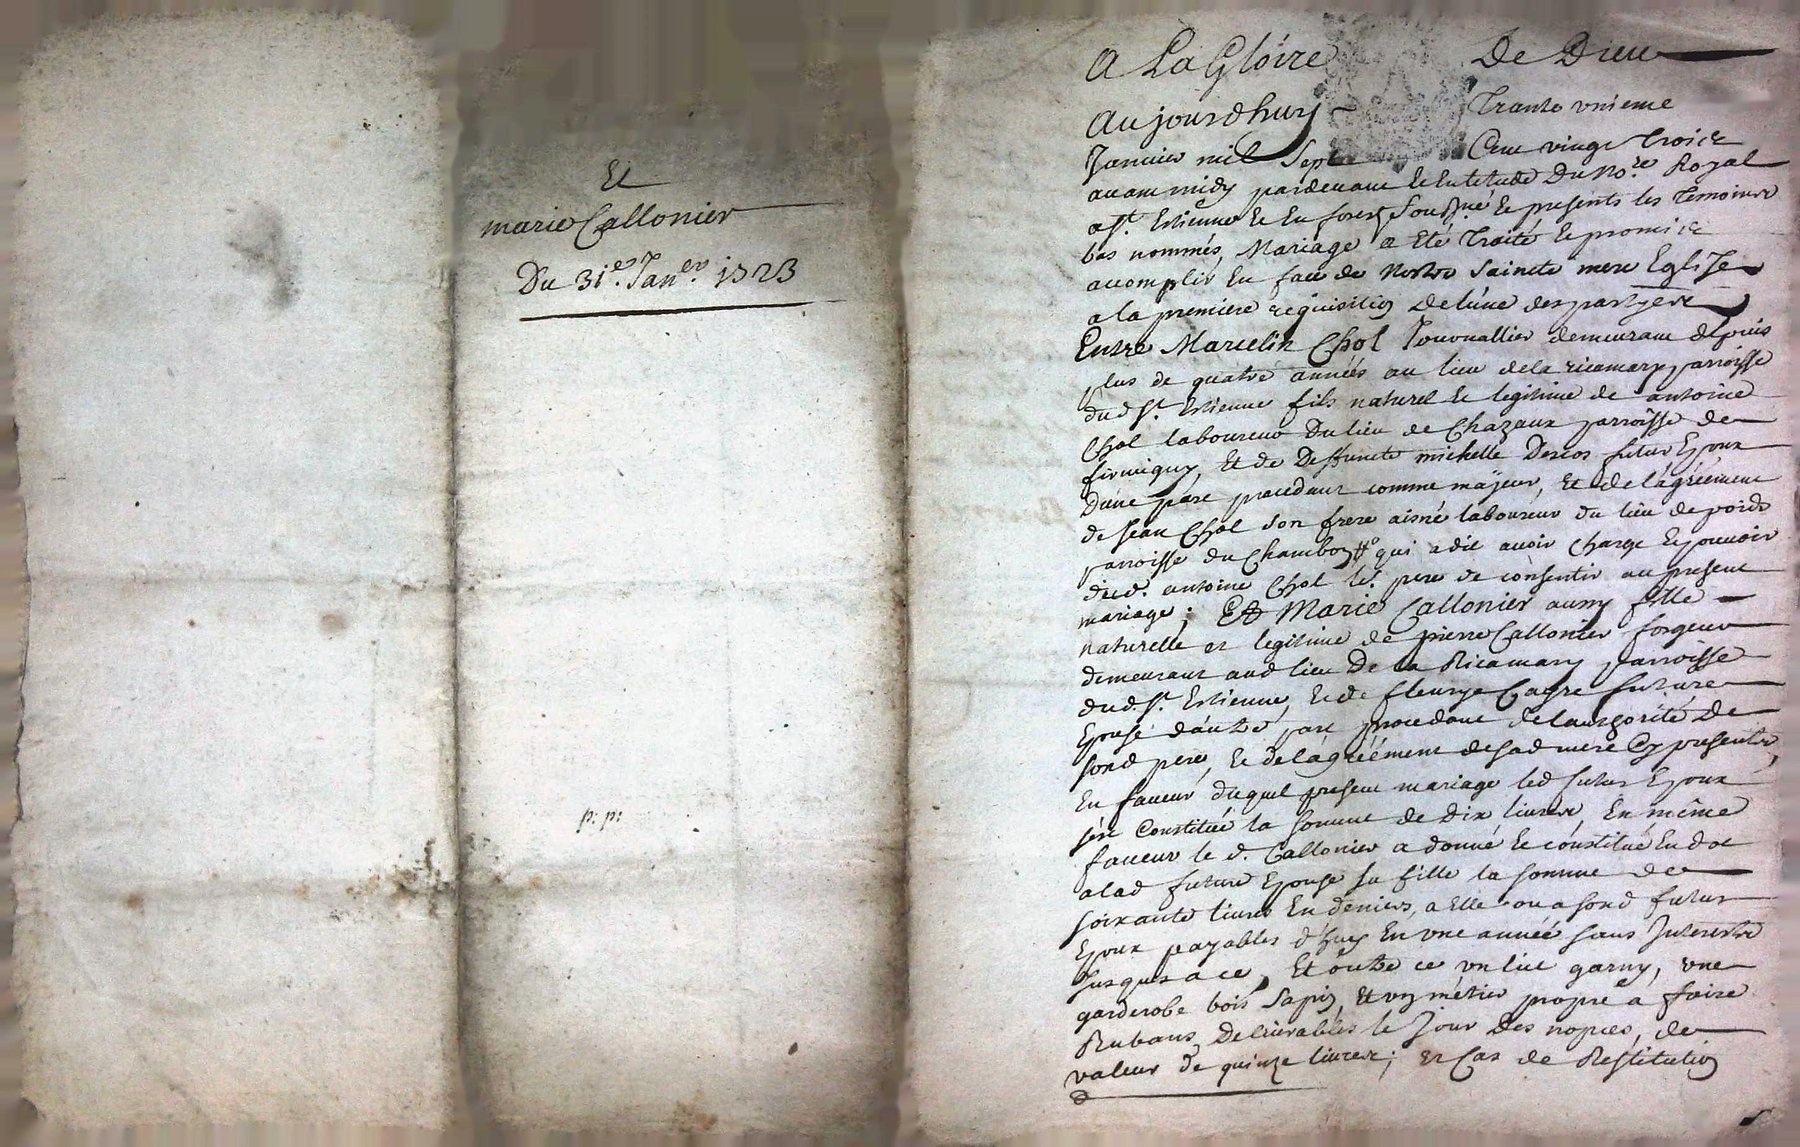 Et
marie Callonier
Du 31e. Janer. 1723
p: p:
A La Gloire De Dieu
Aujourdhuy Trante unieme
Janvier mil Sept Cent vingt Trois
avant midy pardevant Du Nore. Royal
a St. Estienne Et En forest Sousgné Et presents les Temoins
bas nommés, Mariage a Eté Traité Et promis
acomplir En face de Nostre Saincte mere Eglise
a la premiere requisition De lune des partyes
Entre Marcelin Chol demeurant depuis
plus de quatre années au lieu de la ricamary parroisse
dud St. Estienne fils naturel Et legitime de antoine
Chol laboureur Du lieu de Chazaux parroisse de
firminy, Et de Deffuncte michelle Descos futur Epoux
Dune part procedant comme majeur, Et de lagréement
de Jean Chol son frere aisné laboureur du lieu de
parroisse du Chambon qui a dit avoir charge Et pouvoir
dud. antoine Chol led. pere de consentir au present
mariage; Et Marie Callonier aussy fille
naturelle et legitime de pierre Callonier forgeur
demeurant aud lieu De la Ricamary parroisse
dud. St. Estienne, Et de fleurye future
Epouse dautre part procedant de lautorité De
sond pere, Et de lagréément de sad mere Cy presents,
En faveur duquel present mariage led futur Epoux
sest Constitué la somme de Dix livres, En même
faveur le d. Callonier a donné Et constitué En dot
a lad future Epouse sa fille la somme de
soixante livres En deniers, a Elle ou a sond futur
Epoux payables d'huy En une année sans Interests
Jusques a ce, Et outre ce un lict garny, une
garderobe bois Sapin, Et un métier propre a faire
Rubans, Delivrables le Jour Des nopces, de
valeur de quinze livres; Et Cas de Restitution